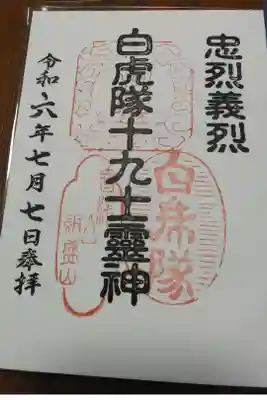 忠烈義烈
白虎隊十九士靈神
白虎隊
飯盛山
令和六年七月七日奉拝